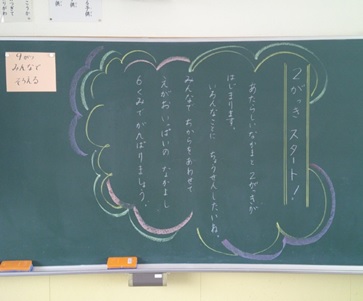 2がっき スタート!
あたらしいなかまと 2がっきが
はじまります。
いろんなことに ちょうせんしたいね。
みんなで ちからをあわせて
えがおいっぱいの なかよし
6くみで がんばりましょう。
4がつ
みんなで
そろえる